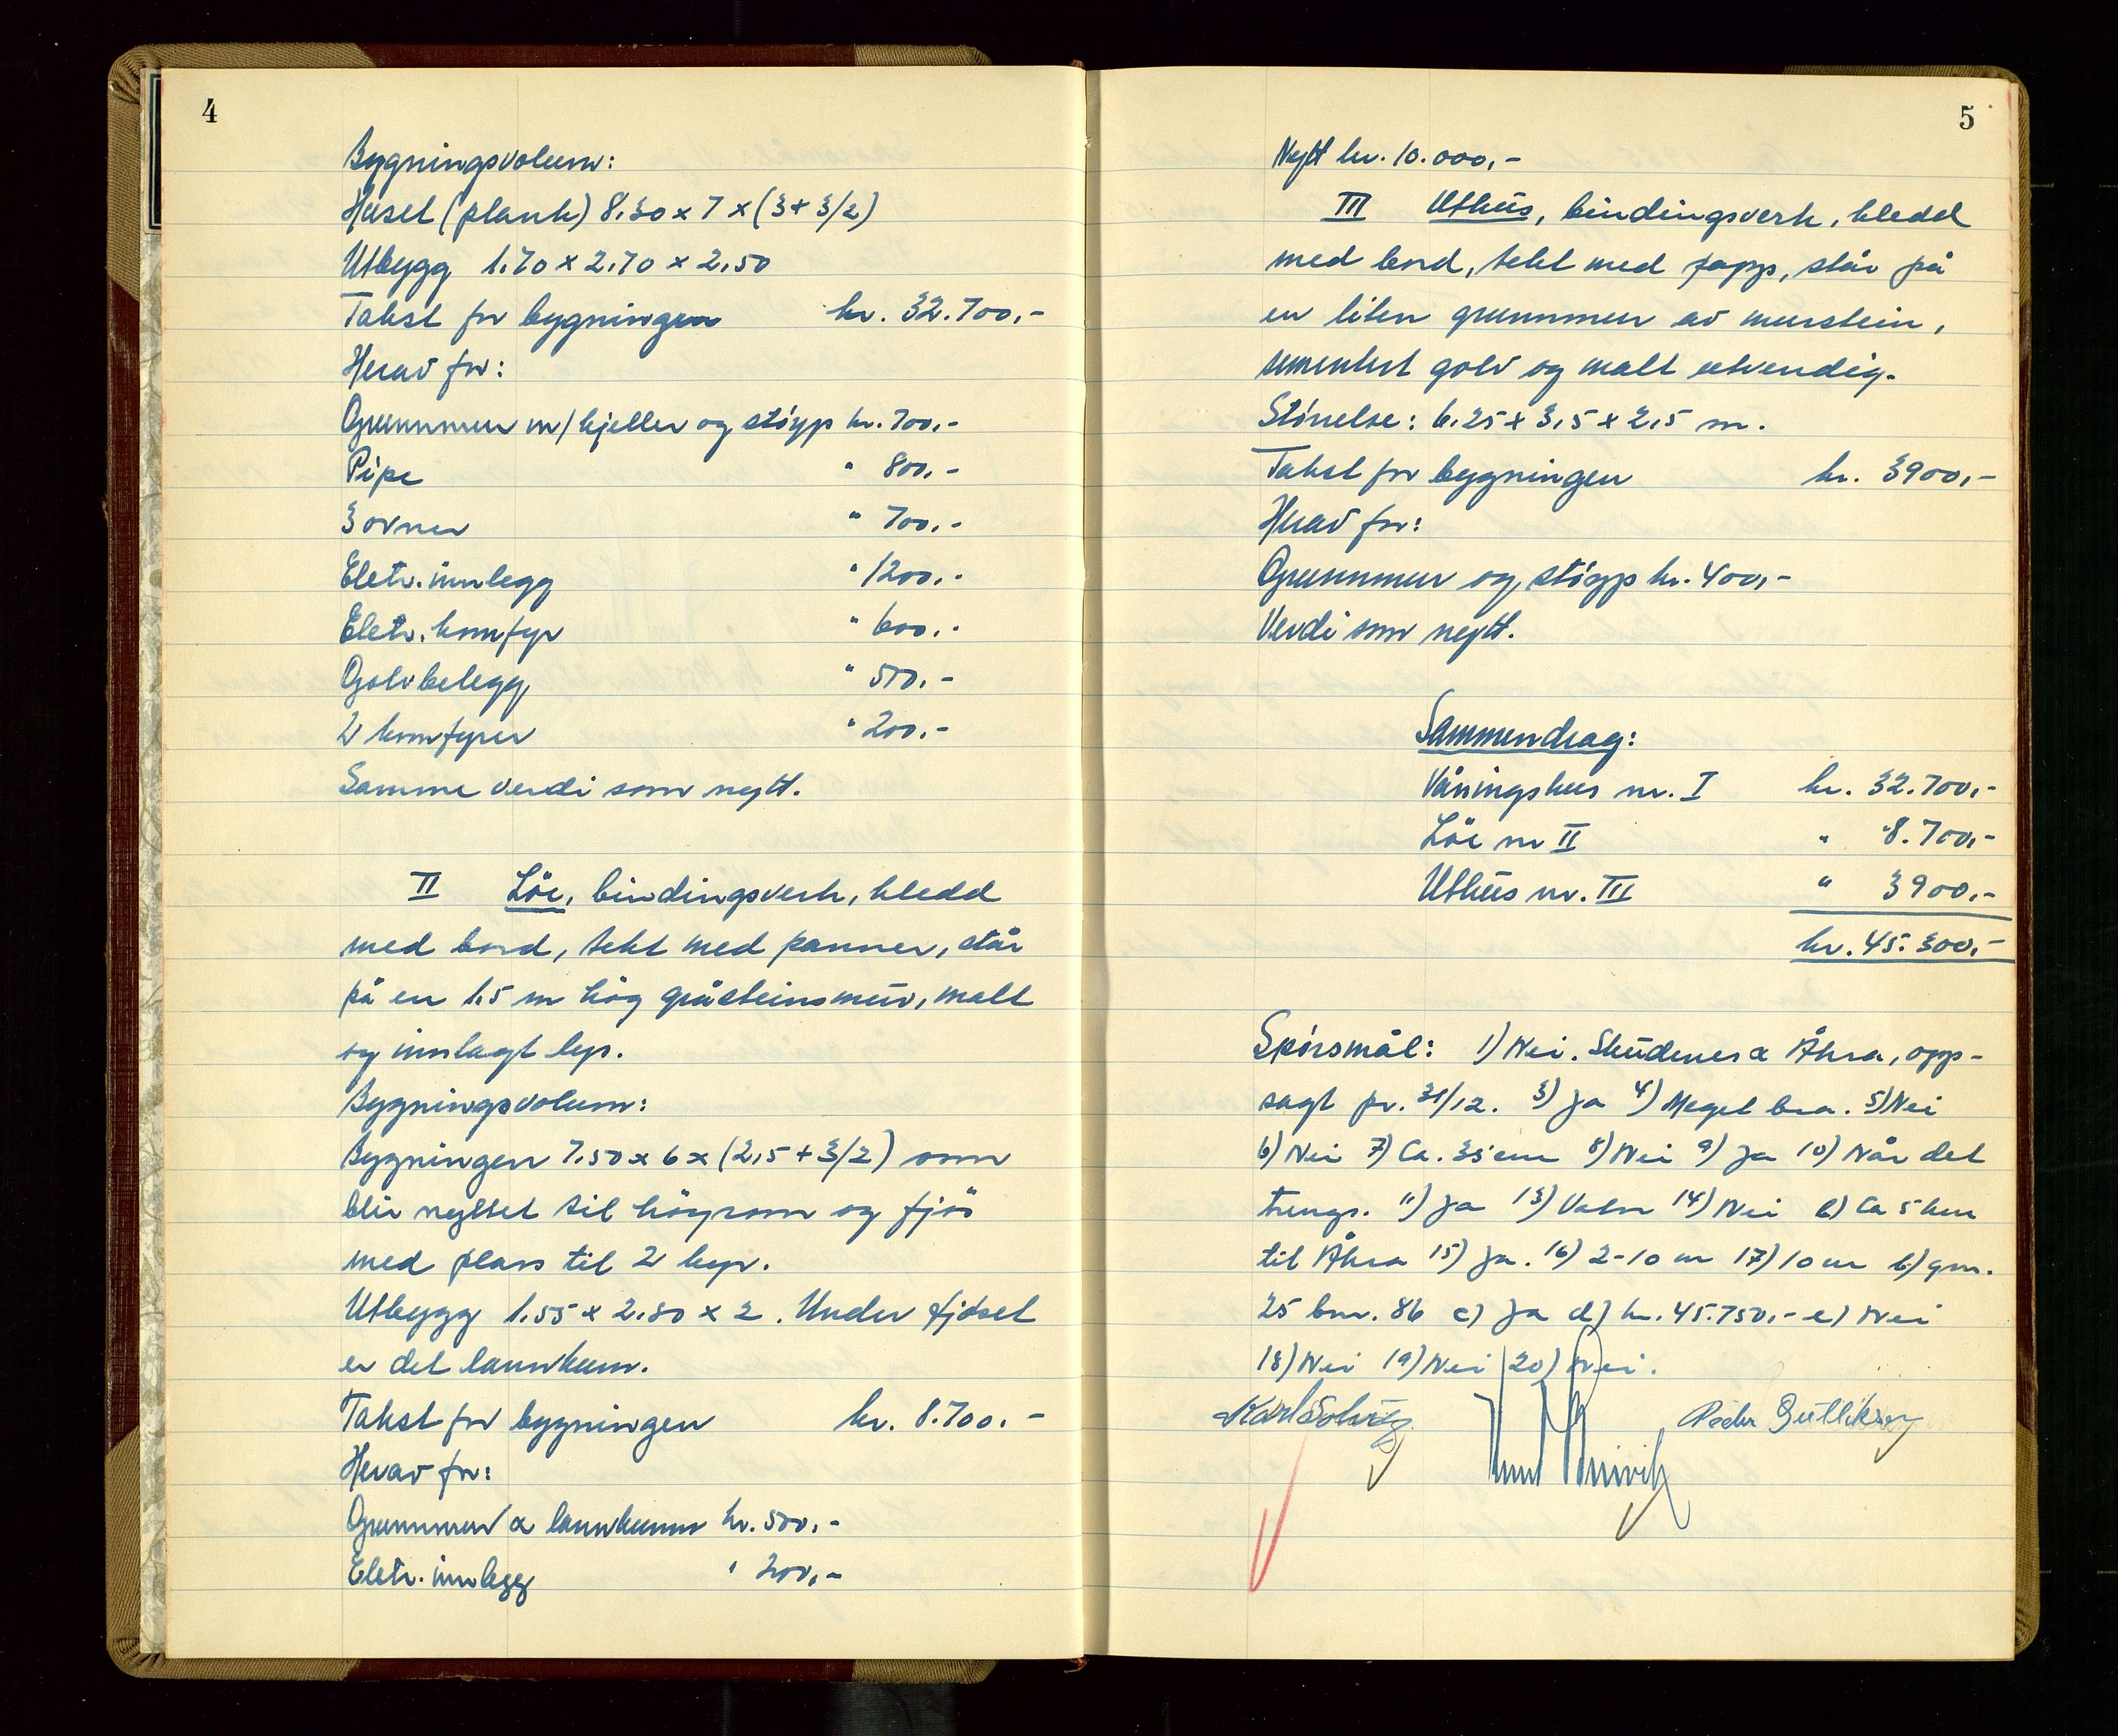 4
Bygningsvolum:
Huset (plank) 8,30 x 7 x (3 + 3/2)
Utbygg 1,70 x 2,70 x 2,50
Takst for bygningen kr. 32.700,-
Herav for:
Grunnmur m/kjeller og støyp kr. 700,-
Pipe " 800,-
3 ovner " 700,-
Eletr. innlegg " 1200,-
Eletr. komfyr " 600,-
Golvbelegg " 500,-
2 komfyrer " 200,-
Samme verdi som nytt.
II Löe, bindingsverk, kledd
med bord, tekt med panner, står
på en 1,5 m høg gråsteinsmur, malt
og innlagt lys.
Bygningsvolum:
Bygningen 7,50 x 6 x (2,5 + 3/2) som
blir nyttet til høyrom og fjøs
med plass til 2 kyr.
Utbygg 1,55 x 2,80 x 2. Under fjøset
er det lannkum.
Takst for bygningen kr. 8.700,-
Herav for:
Grunnmur & lannkum kr. 500,-
Eletr. innlegg " 200,-
5
Nytt kr. 10.000,-
III Uthus, bindingsverk, kledd
med bord, tekt med papp, står på
en liten grunnmur av murstein,
sementert golv og malt utvendig.
Størrelse: 6,25 x 3,5 x 2,5 m.
Takst for bygningen kr. 3900,-
Herav for:
Grunnmur og støyp kr. 400,-
Verdi som nytt.
Sammendrag:
Våningshus nr. I kr. 32.700,-
Löe nr II " 8.700,-
Uthus nr. III " 3900,-
kr. 45.300,-
Spørsmål: 1) Nei. Skudenes & Åkra, opp-
sagt pr. 31/12. 3) Ja 4) Meget bra. 5) Nei
6) Nei 7) Ca. 35 cm 8) Nei 9) Ja 10) Når det
trengs. 11) Ja 13) Vatn 14) Nei b) Ca 5 km
til Åkra 15) Ja. 16) 2-10 m 17) 10 m b) gnr.
25 bnr. 86 c) Ja d) kr. 45.750,- e) Nei
18) Nei 19) Nei 20) Nei.
Karl Solvig Peder Gulliksen